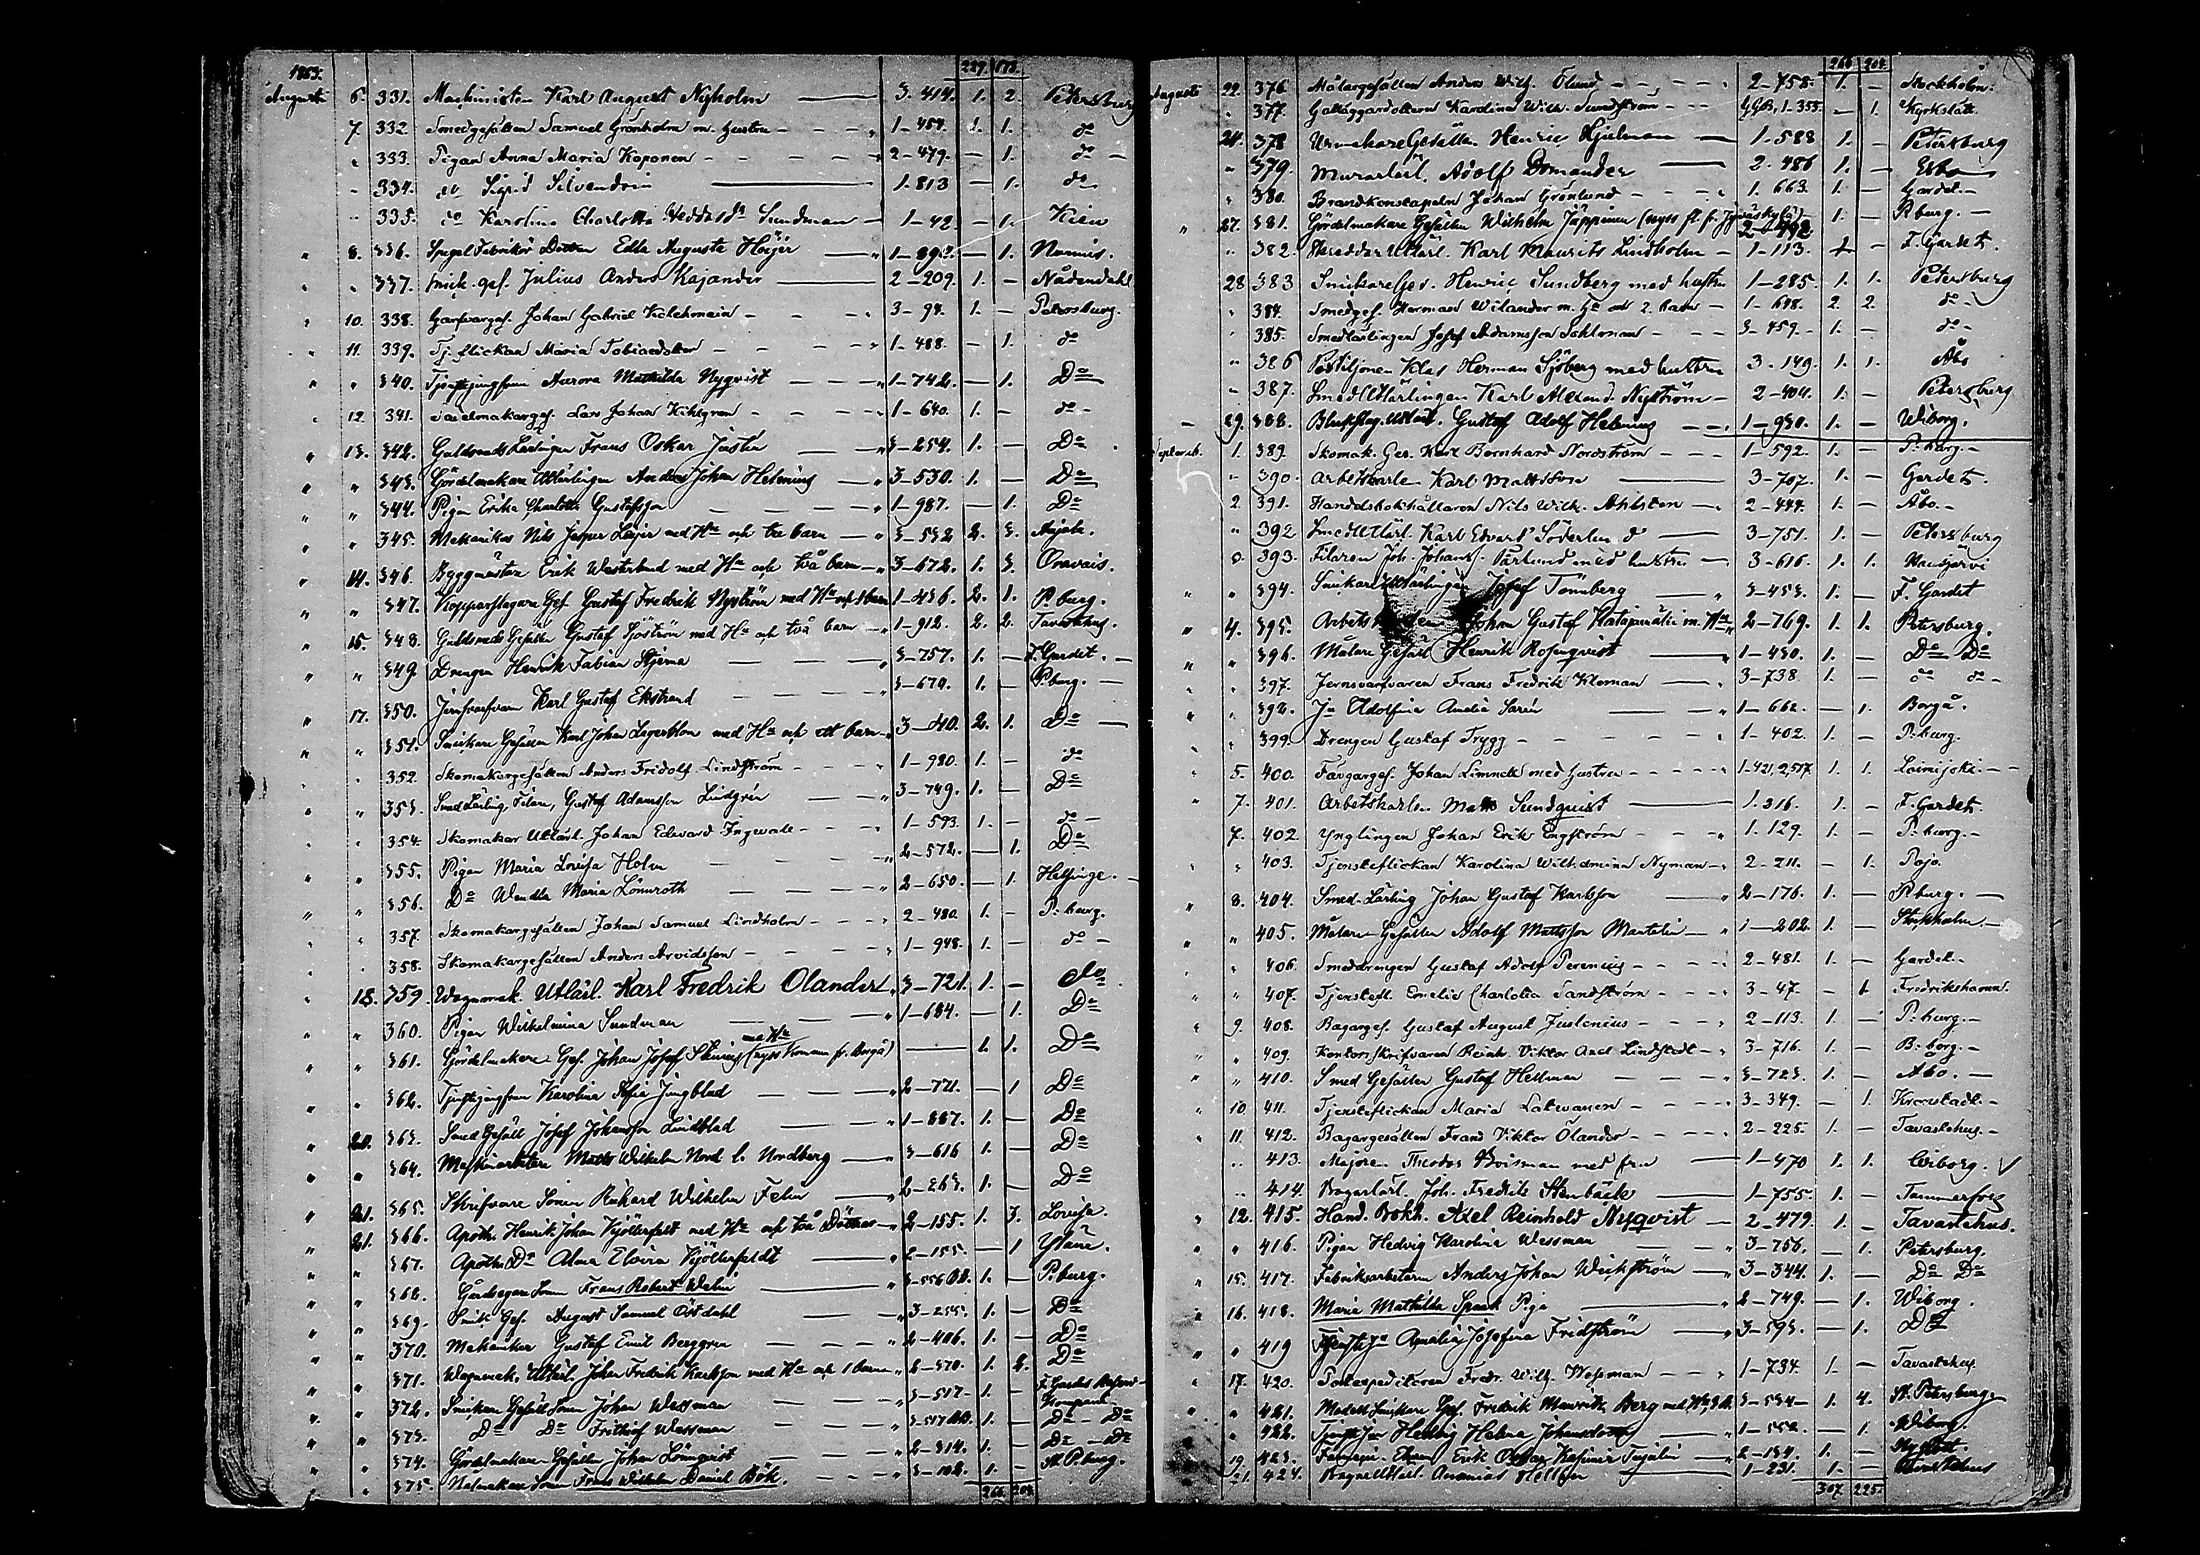 1863.
227. 178.
Augusti 6. 331. Machinisten Karl August Nyholm 3-414. 1. 2. Petersburg
7. 332 Smedgesällen Samuel Granholm m. hustru 1-454. 1. 1. do
333. Pigan Anna Maria Koponen 2-479. 1. do
334. do Sigrid Silvendoin 1.813 1. do
335. do Karolina Charlotta Sundman 1-42. 1. Kieu
8. 336. Ebba Augusta Höijer 1. Nurmis.
337. Snick. gef. Julius Anders Kajander 2-209. 1. Nådendahl
10. 338. Garfvargef. Johan Gabriel 3-94. 1. Petersburg.
11. 339. Tj. flickan Maria Tobiasdotter 1-488. 1. do
340. Aurora Mathilda Nyqvist 1-742. 1. Do
12. 341. Lars Johan Kihlgren 1-640. 1. do
13. 342. Guldsmeds Lärlingen Frans Oskar Justin 3-254. 1. Do
343. Gördelmakare Utlärlingen Anders Johan Helenius 3-530. 1. Do
344. Pigan Erika Charlotta Gustafsson 1-987. 1. Do
345. Mekanikus Nils Jesper med Hu och tre barn 3-532 2. 3.
14. 346 Byggmästare Erik Westerlund med Hu och två barn 3-672. 1. 3. Oravais.
347. Kopparslagare Gef. Gustaf Fredrik Nyström med Hu och 1 barn 1-436. 2. 1. P.burg.
15. 348. Guldsmeds Gesällen Gustaf Sjöström med Hu och två barn 1-912. 2. 2. Tavastehus.
349. Drengen Henrik Fabian Stjerna 3-757. 1. F. Gardet.
350. Karl Gustaf Ekstrand 3-670. 1. P.burg.
17. 351. Snickare Gesällen Karl Johan Lagerblom med Hu och ett barn 3-40. 2. 1. Do
352. Skomakargesällen Anders Fridolf Lindström 1-980. 1. do
353. Smed Lärling Gustaf Adamsson Lindgrén 3-749. 1. Do
354. Skomakar Utlärl. Johan Edward Ingewall 1-593. 1. do
355. Pigan Maria Lovisa Holm 2-572. 1. Do
356. Do Wendla Maria Lönnroth 2-650. 1. Helsinge.
357. Skomakargesällen Johan Samuel Lindholm 2-480. 1. P.burg.
358. Skomakargesällen Anders Arvidsson 1-948. 1. do
18. 359. Wagnmak. Utlärl. Karl Fredrik Olander 3-721. 1. do
360. Pigan Wilhelmina Sundman 1-684. 1. Do
361. Gördelmakare Gef. Johan Josef med Hu (nyss kommen fr. Borgå) 1. 1. Do
362. Karolina Sofia Jungblad 2-771. 1 Do
363. Smed Gesäll Josef Johansson Lindblad 1-887. 1. Do
20. 364. Maskinarbetare Matts Wilhelm Nord l. Nordberg 3-616 1. Do
365. Skrifvare Sonen Rikard Wilhelm Felin 2-263. 1. Do
21. 366. Apoth. Henrik Johan Kjöllerfeldt med Hu och två Döttrar 2-155. 1. 3. Lovisa.
21. 367. Apoth. Dr Alma Elvira Kjöllerfeldt 2-155. 1 Yläne.
368. Gårdsegare Sonen Frans Robert Walin 3-556 1. P.burg.
369. Snick. Gef. August Samuel Östdahl 3-255. 1. Do
370. Mekanikus Gustaf Emil Berggren 2-406. 1. Do
371. Wagnmak. Utlärl. Johan Fredrik Karlsson med Hu och 1 barn 2-370. 1. 2. Do
372. Snickare Gesäll Sonen Johan Wessman 3-517. 1. F. Gardes Reserv Kompani
373. Do Do Frithiof Wessman 3-517 1. Do Do
374. Gördelmakare Gesällen Johan Lönnqvist 2-314. 1. Do Do
375. Hatmakare Sonen Frans Wilhelm Daniel Bök. 3-102. 1. St. P.burg.
266. 204.
266 204.
Augusti 22. 376 Målargesällen Anders Wilh. Ölund 2-758. 1. Stockholm.
377. Karolina Wilh. Sundström 1-355. 1. Kyrkslätt.
24. 378 Urmakare Gesällen Henric Hjelman 1-588 1. Petersburg
379. Murarlärl. Adolf Domander 2.486 1. Esbo
380. Brandkonstapeln Johan Grönlund 1.663. 1. Gardet.
27. 381. Gördelmakare Gesällen Wilhelm Jäppinen (nyss fl. fr. Jyväskylä) 1. P.burg.
382. Skreddar Utlärl. Karl Maurits Lindholm 1-113. 1 F. Gardet.
28 383 Snickare Ges. Henric Sundberg med hustru 1-285. 1. 1. Petersburg
384. Smedgef. Herman Wilander m. Hu och 2 barn 1-648. 2. 2. do
385. Smedlärlingen Josef Adamsson Sahlman 3-459. 1. do
386 Postiljonen Klas Herman Sjöberg med hustru 3.149. 1. 1. Åbo
387. Smed Utlärlingen Karl Alexand. Nyström 2-404. 1. Petersburg
29. 388. Blekslag. Utlärl. Gustaf Adolf Helenius 1-930. 1. Wiborg.
Septemb. 1. 389. Skomak. Ges. Karl Bernhard Nordström 1-592. 1. P.burg.
390. Arbetskarlen Karl Mattsson 3-707. 1. Gardet.
2 391. Handelsbokhållaren Nils Wilh. Ahlsten 2-444. 1. Åbo.
392 Smed Utlärl. Karl Edvard Söderlund 3-751. 1. Petersburg
393. Filaren Joh. Johans. Pärlund med hustru 3-616. 1. 1. Hausjärvi
394. Snickare Utlärlingen Josef Tönnberg 3-453. 1. F. Gardet
4. 395. Johan Gustaf Katajamäki m. Hu 2-769. 1. 1. Petersburg.
396. Målare Gesäll Henrik Rosenqvist 1-430. 1. Do Do
397. Jernsvarfvaren Frans Fredrik Kleman 3-738 1. do do
398. Jn Adolfina Amalia Sarén 1-662. 1. Borgå.
399. Drengen Gustaf Trygg 1-402. 1. P.burg.
5. 400. Färgargef. Johan Limnell med hustru 1-421, 2,517. 1. 1. Loimijoki.
7. 401. Arbetskarlen Matts Sundquist 1.316. 1. F. Gardet.
7. 402. Ynglingen Johan Erik Engström 1.129. 1. P.burg.
403. Tjensteflickan Karolina Wilhelmina Nyman 2-211. 1. Pojo.
8. 404. Smed-Lärling Johan Gustaf Karlsson 2-176. 1. P.burg.
405. Målare-Gesällen Adolf Mattsson Mantelin 1-202. 1. Stockholm.
406. Smeddrengen Gustaf Adolf Perenius 2-481. 1. Gardet.
407. Tjenstefl. Emelie Charlotta Sandström 3-47. 1. Fredrikshamn.
9. 408. Bagargef. Gustaf August Juslenius 2-113. 1. P.burg.
409. Kontorsskrifvaren Reinh. Viktor Axel Lindstedt 3-716. 1. B.borg.
410. Smed Gesällen Gustaf Hellman 3-723. 1. Åbo.
10. 411. Tjensteflickan Maria Lakwanen 3-349. 1. Kronstadt.
11. 412. Bagargesällen Frans Viktor Ölander 2-225. 1. Tavastehus.
413. Majoren Theodor Boisman med fru 1-470 1. 1. Wiborg.
414. Bagarlärl. Joh. Fredrik Stenbäck 1-755. 1. Tammerfors
12. 415. Hand. Bokh. Axel Reinhold Nyqvist 2-479. 1. Tavastehus.
416. Pigan Hedvig Karolina Wessman 3-756. 1. Petersburg.
15. 417. Fabriksarbetaren Anders Johan Weckström 3-344. 1. Do Do
16. 418. Maria Mathilda Spaak Piga 2-749. 1. Wiborg.
419 Amalia Josefina Fridström 3-593. 1. Do
17. 420. Postexpeditoren Fredr. Wilh. Wessman 1-734. 1. Tavastehus.
421. Modell Snickare Gef. Fredrik Maurits Berg med Hu, 3 b. 3-554 1. 4. St. Petersburg.
422. Hedvig Helena Johansdotter 1-552. 1. Wiborg.
19. 423. Erik Oskar Kasimir 2-134. 1. Nyslott.
21. 424. Ananias Hellsten 1-221. 1. Tavastehus
307. 225.